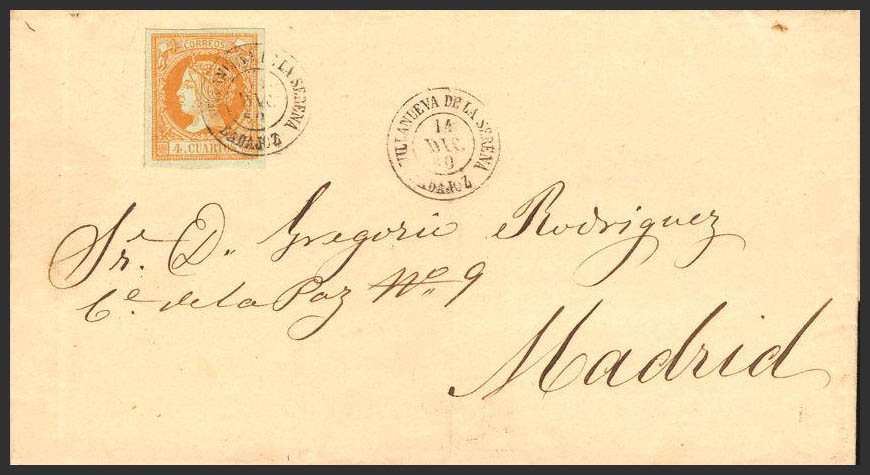 CORREOS
4 CUARTOS
LA SERENA
BADAJOZ
VILLANUEVA DE LA SERENA
14
DIC.
60
BADAJOZ
Sr. D. Gregorio Rodriguez
Ce. de la Paz No. 9
Madrid